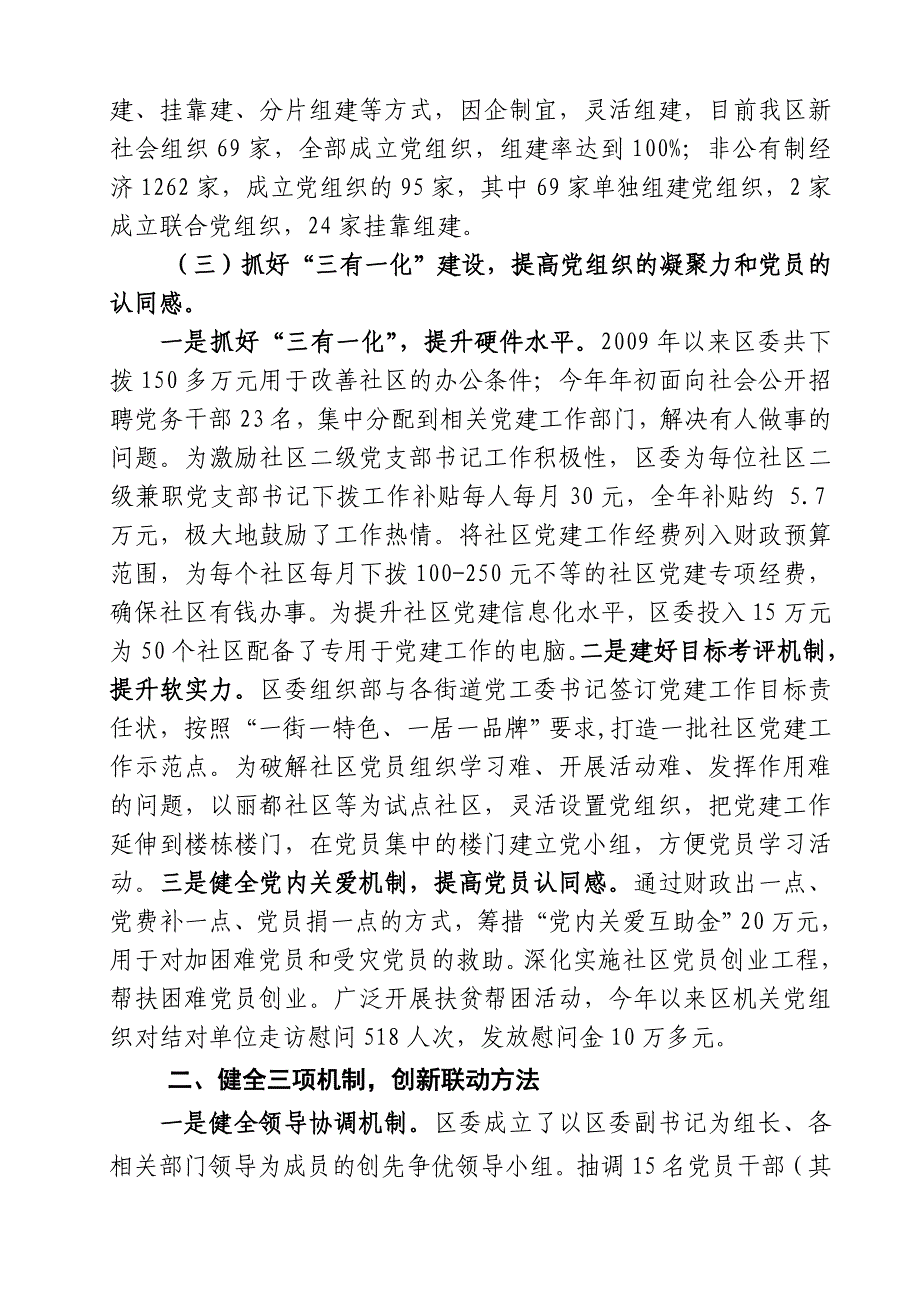 建、挂靠建、分片组建等方式，因企制宜，灵活组建，目前我区新
社会组织69家，全部成立党组织，组建率达到100%；非公有制经
济1262家，成立党组织的95家，其中69家单独组建党组织，2家
成立联合党组织，24家挂靠组建。
（三）抓好“三有一化”建设，提高党组织的凝聚力和党员的
认同感。
一是抓好“三有一化”，提升硬件水平。2009年以来区委共下
拨150多万元用于改善社区的办公条件；今年年初面向社会公开招
聘党务干部23名，集中分配到相关党建工作部门，解决有人做事的
问题。为激励社区二级党支部书记工作积极性，区委为每位社区二
级兼职党支部书记下拨工作补贴每人每月30元，全年补贴约 5.7
万元，极大地鼓励了工作热情。将社区党建工作经费列入财政预算
范围，为每个社区每月下拨100-250元不等的社区党建专项经费，
确保社区有钱办事。为提升社区党建信息化水平，区委投入15万元
为50个社区配备了专用于党建工作的电脑。二是建好目标考评机制，
提升软实力。区委组织部与各街道党工委书记签订党建工作目标责
任状，按照 “一街一特色、一居一品牌”要求,打造一批社区党建工
作示范点。为破解社区党员组织学习难、开展活动难、发挥作用难
的问题，以丽都社区等为试点社区，灵活设置党组织，把党建工作
延伸到楼栋楼门，在党员集中的楼门建立党小组，方便党员学习活
动。三是健全党内关爱机制，提高党员认同感。通过财政出一点、
党费补一点、党员捐一点的方式，筹措“党内关爱互助金”20万元，
用于对加困难党员和受灾党员的救助。深化实施社区党员创业工程，
帮扶困难党员创业。广泛开展扶贫帮困活动，今年以来区机关党组
织对结对单位走访慰问518人次，发放慰问金10万多元。
二、健全三项机制，创新联动方法
一是健全领导协调机制。区委成立了以区委副书记为组长、各
相关部门领导为成员的创先争优领导小组。抽调15名党员干部（其